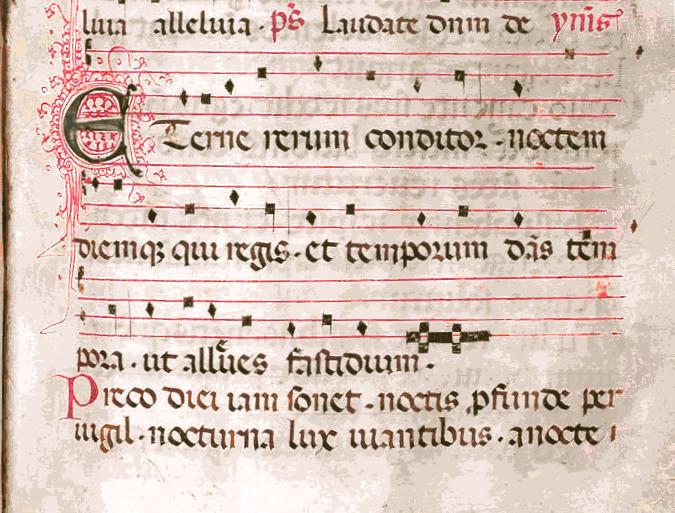 luia alleluia · p̄s Laudate dn̄m de ẏmīs
ETerne rerum conditor · noctem
diemq; qui regis · et temporum dās tēm
pora · ut alleues fastidium ·
Preco diei iam sonet · noctis ꝓfunde per
uigil · nocturna lux uiantibus · a nocte